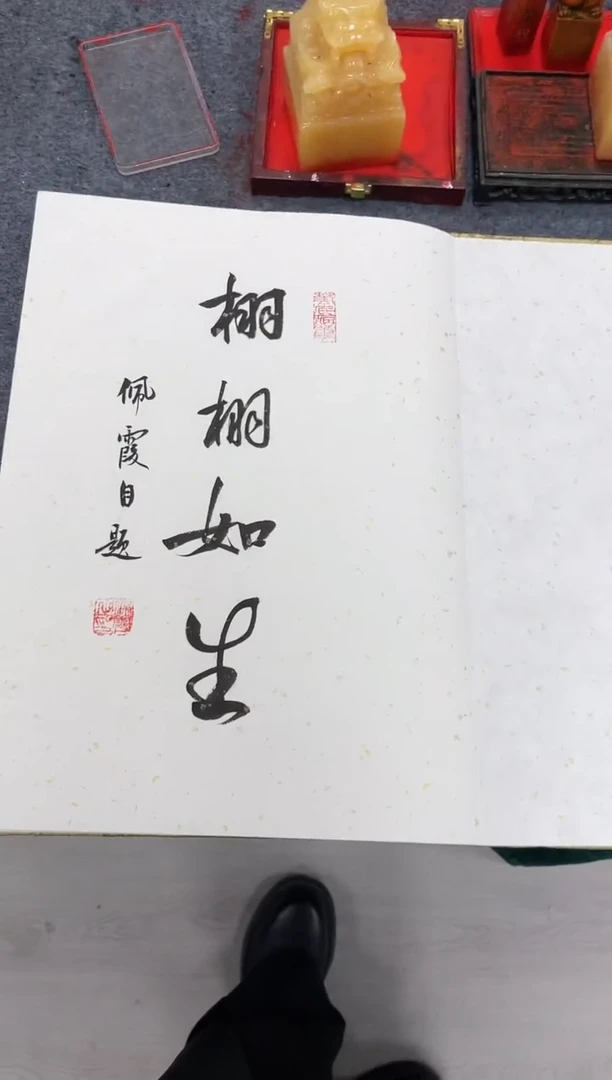 栩栩如生
佩霞自题